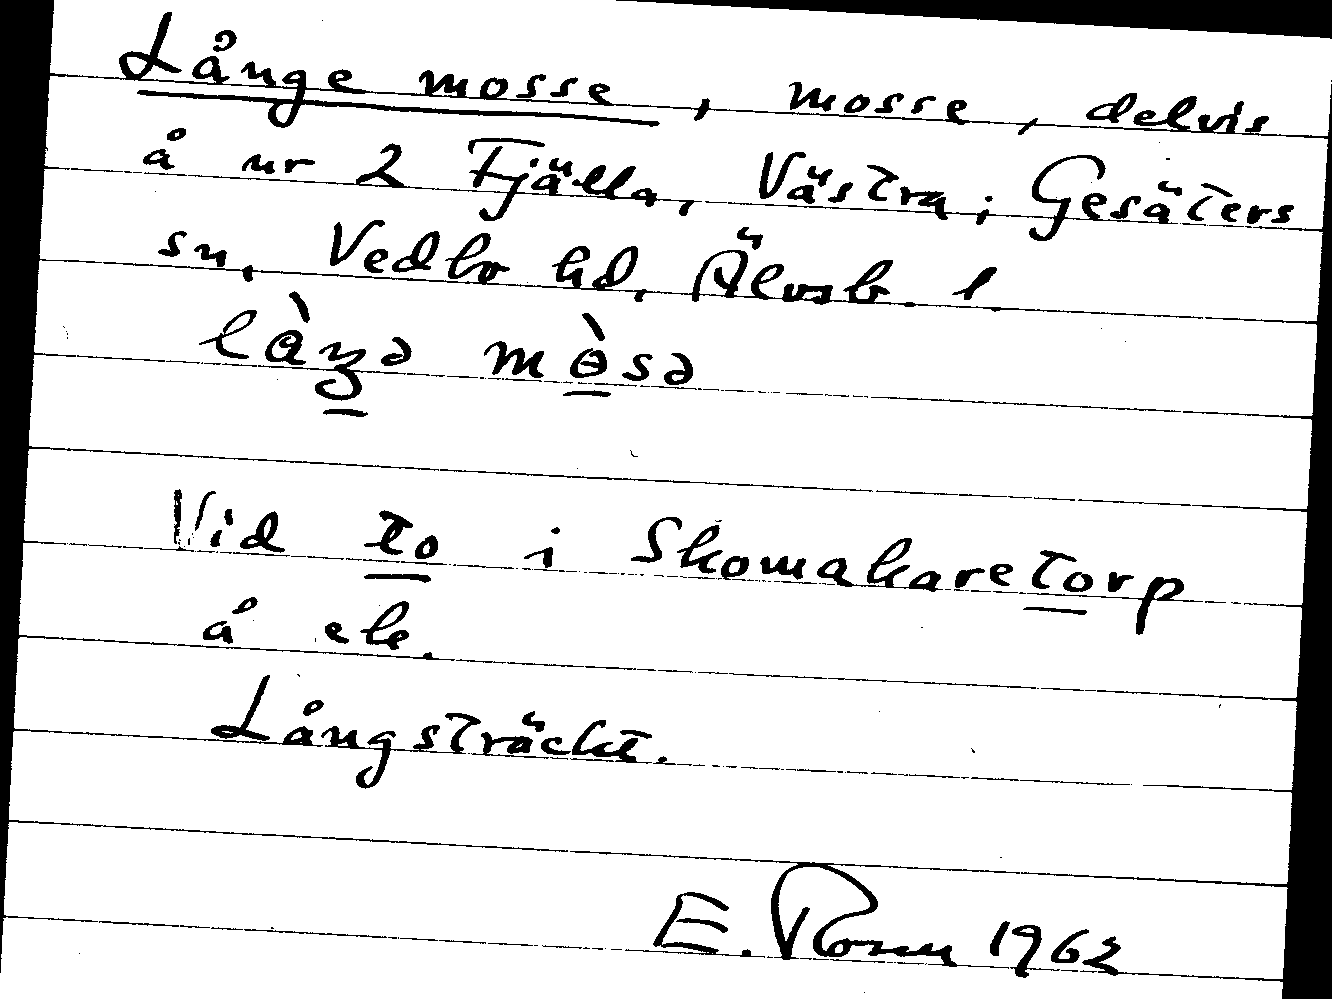 Långe mosse, mosse, delvis
å nr 2 Fjälla, Västra; Gesäters
sn, Vedbo hd. Älvsb. l.
là̀ŋə mɵ̀sə
Vid to i Skomakaretorp
å ek.
Långsträckt.
E. Rosm 1962